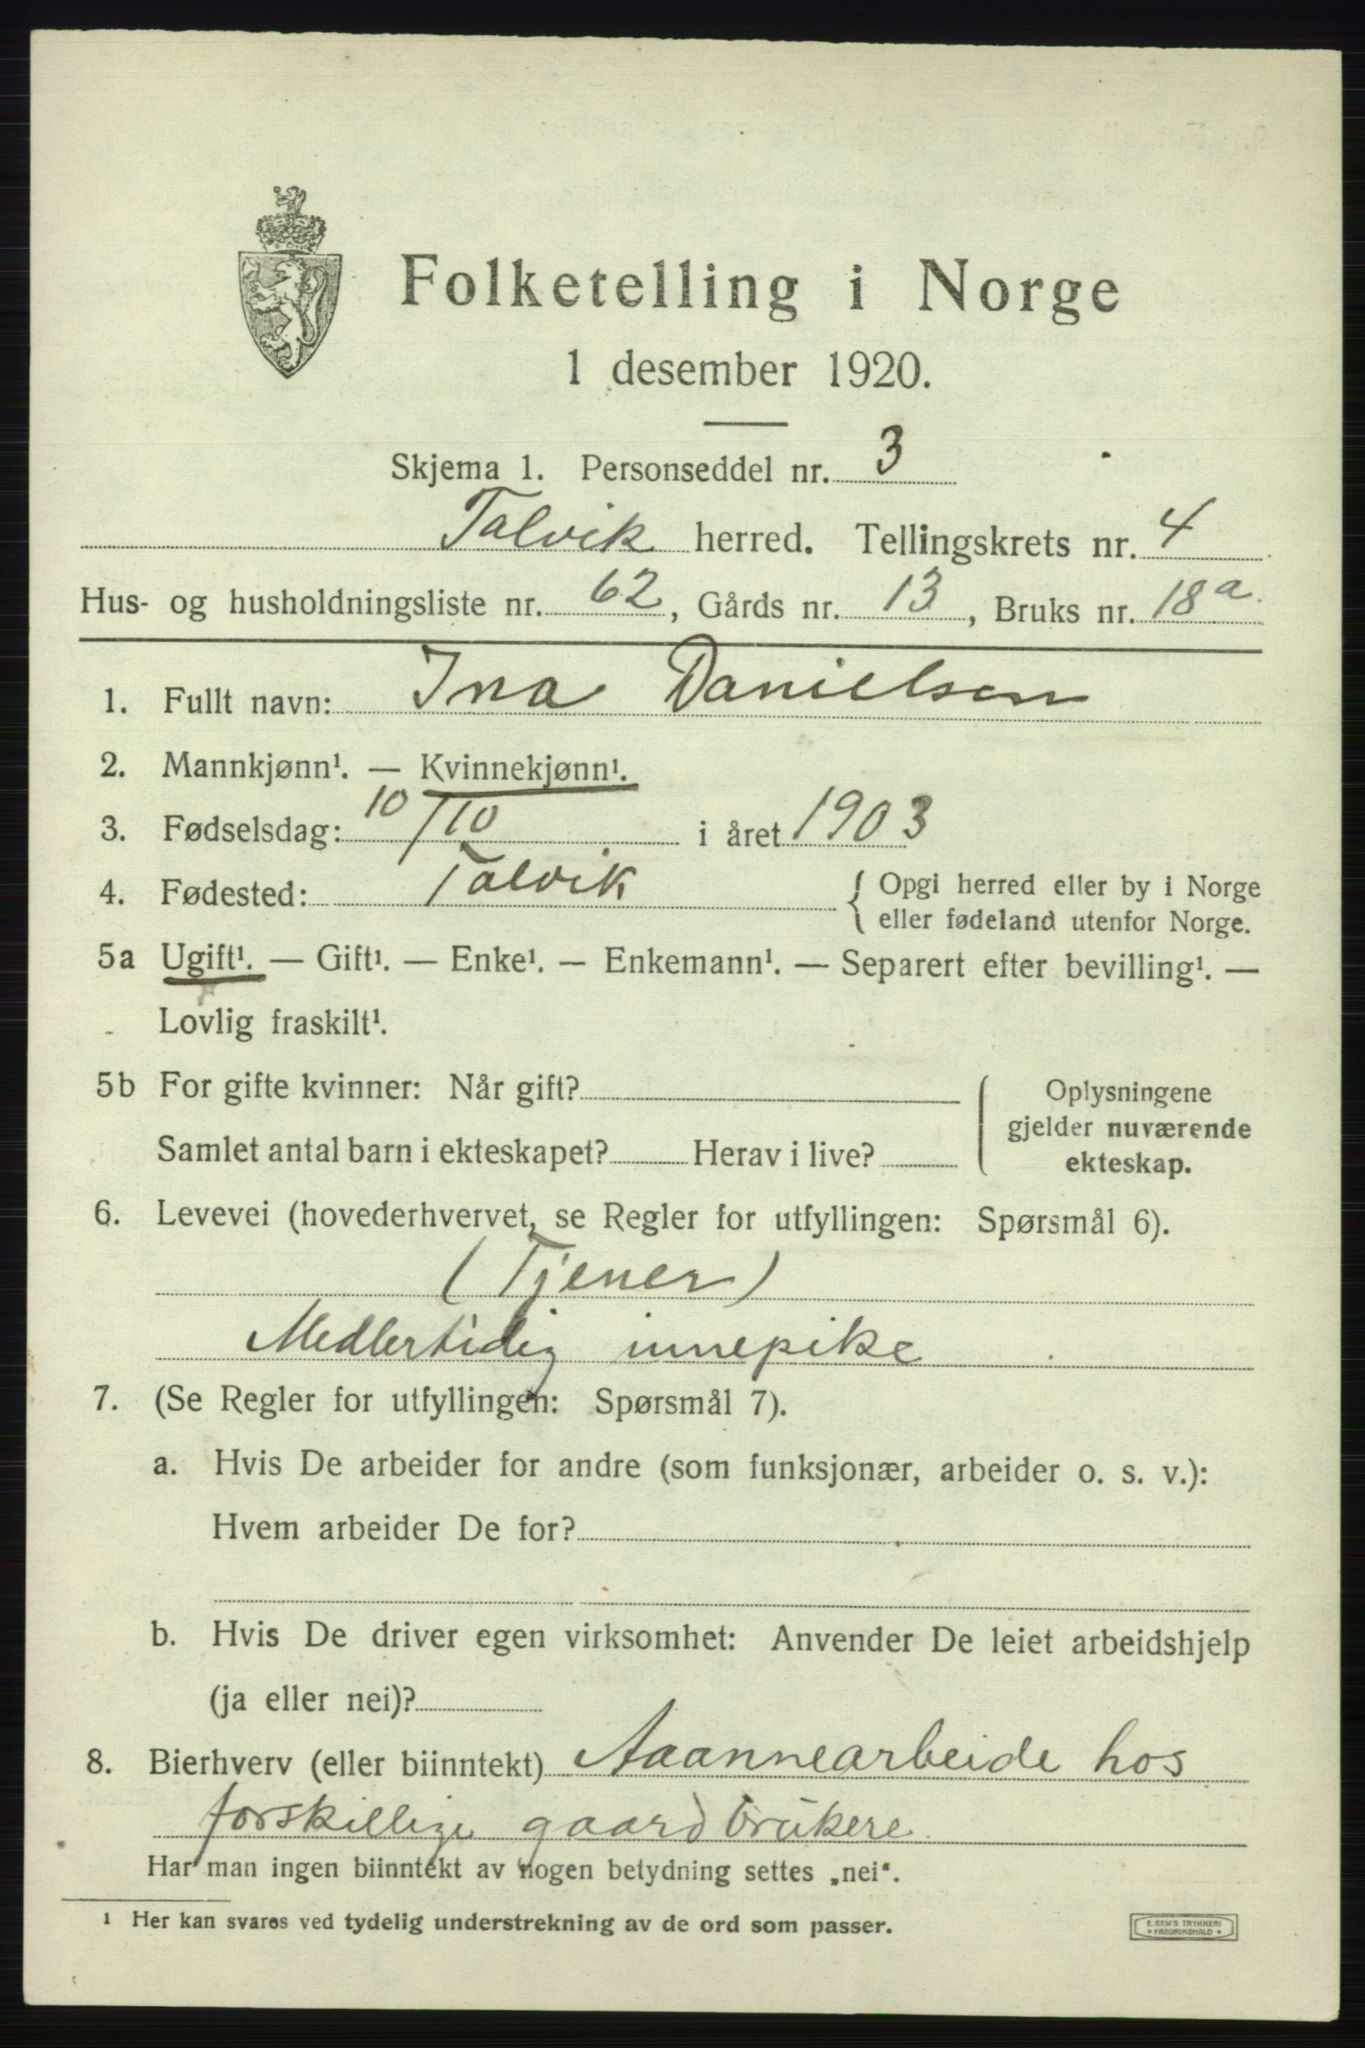 Folketelling i Norge
1 desember 1920.
Skjema 1. Personseddel nr. 3
Talvik herred. Tellingskrets nr. 4
Hus- og husholdningsliste nr. 62, Gårds nr. 13, Bruks nr. 18a.
1. Fullt navn: Ina Danielsen
2. Mannkjønn¹. — Kvinnekjønn¹.
3. Fødselsdag: 10/10 i året 1903
4. Fødested: Talvik { Opgi herred eller by i Norge
eller fødeland utenfor Norge.
5a Ugift¹. — Gift¹. — Enke¹. — Enkemann¹. — Separert efter bevilling¹. —
Lovlig fraskilt¹.
5b For gifte kvinner: Når gift?
Samlet antal barn i ekteskapet? Herav i live?
Oplysningene
gjelder nuværende
ekteskap.
6. Levevei (hovederhvervet, se Regler for utfyllingen: Spørsmål 6).
(Tjener)
Medlertidig innepike
7. (Se Regler for utfyllingen: Spørsmål 7).
a. Hvis De arbeider for andre (som funksjonær, arbeider o. s. v.):
Hvem arbeider De for?
b. Hvis De driver egen virksomhet: Anvender De leiet arbeidshjelp
(ja eller nei)?
8. Bierhverv (eller biinntekt) Aaannearbeide hos
forskillige gaardbrukere.
Har man ingen biinntekt av nogen betydning settes „nei“.
¹ Her kan svares ved tydelig understrekning av de ord som passer.
E. SEM'S TRYKKERI
* FREDRIKSHALD *